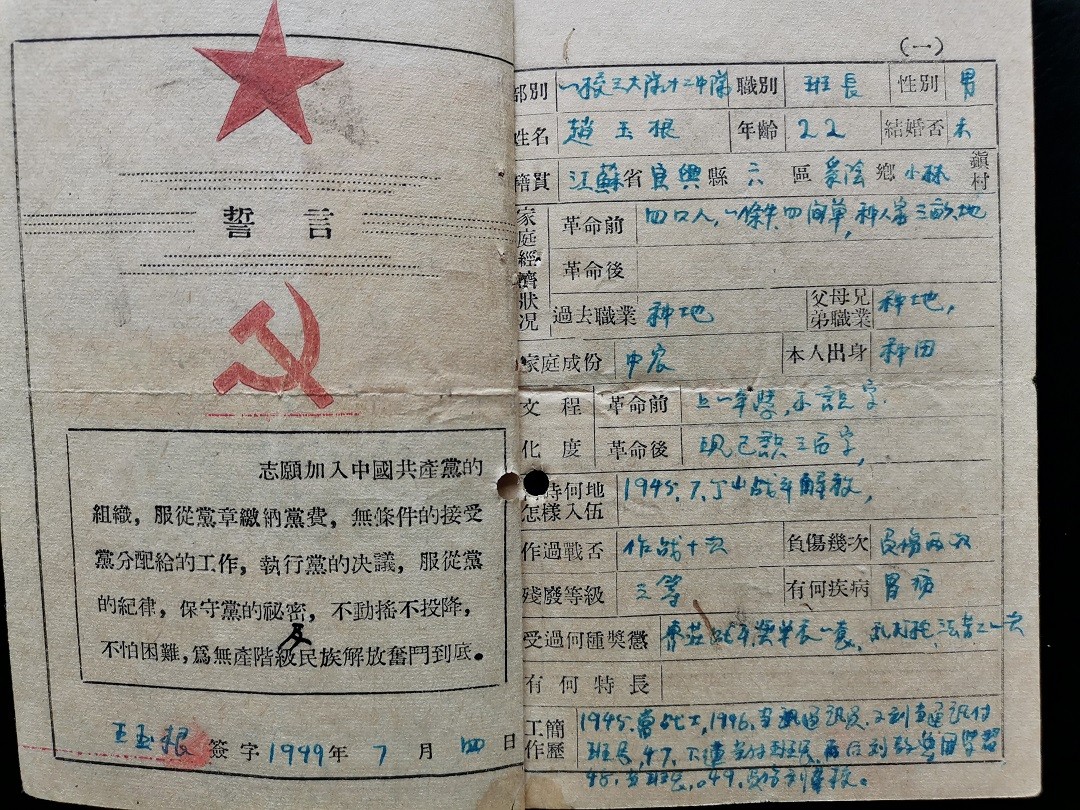 誓言
志願加入中國共產黨的
組織，服從黨章繳納黨費，無條件的接受
黨分配給的工作，執行黨的决議，服從黨
的紀律，保守黨的祕密，不動搖不投降，
不怕困難，爲無產階級及民族解放奮鬥到底。
玉根 簽字 1949年 7 月 四 日
(一)
部別 一校三大隊十二中隊 職別 班長 性別 男
姓名 趙玉根 年齡 22 結婚否 未
籍貫 江蘇省 宜興縣 六 區 陰鄉 小林 鎮村
家庭經濟狀况
革命前 四口人，一條牛四間草，种人家三畝地
革命後
過去職業 种地 父母兄弟職業 种地，
家庭成份 中农 本人出身 种田
文化程度
革命前 上一年學，不識字
革命後 現已識三百字，
時何地怎樣入伍 1945.7.丁山战斗解放，
作過戰否 作战十次 負傷幾次 負傷兩次
殘廢等級 三等 有何疾病 胃病
受過何種奬懲 莊战斗奬單衣一套，
有何特長
工作簡歷 1945.當战士，1946.當通訊員，又到通訊付
班長，47.
48.班長。49.